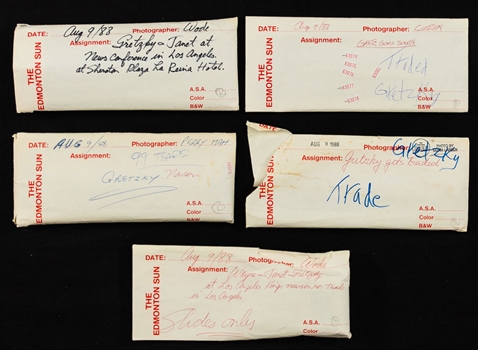 THE EDMONTON SUN
DATE: Aug 9/88 Photographer: Wode
Assignment: Gretzky & Janet at
News Conference in Los Angeles
at Sheraton Plaza La Reina Hotel.
A.S.A.
Color
B&W
THE EDMONTON SUN
DATE: Aug 9/88 Photographer:
Assignment:
Traded
Gretzky
A.S.A.
Color
B&W
THE EDMONTON SUN
DATE: AUG 9/88 Photographer:
Assignment: 99 TRADE
GRETZKY
A.S.A.
Color
B&W
THE EDMONTON SUN
DATE: AUG 9 1988 Photographer: Gretzky
PHOTO BY
Assignment: Gretzky gets traded
Trade
A.S.A.
Color
B&W
THE EDMONTON SUN
DATE: Aug 9/88 Photographer: Wode
Assignment: Wayne & Janet Gretzky
at Los Angeles Kings newser on trade
in Los Angeles
Slides only
A.S.A.
Color
B&W